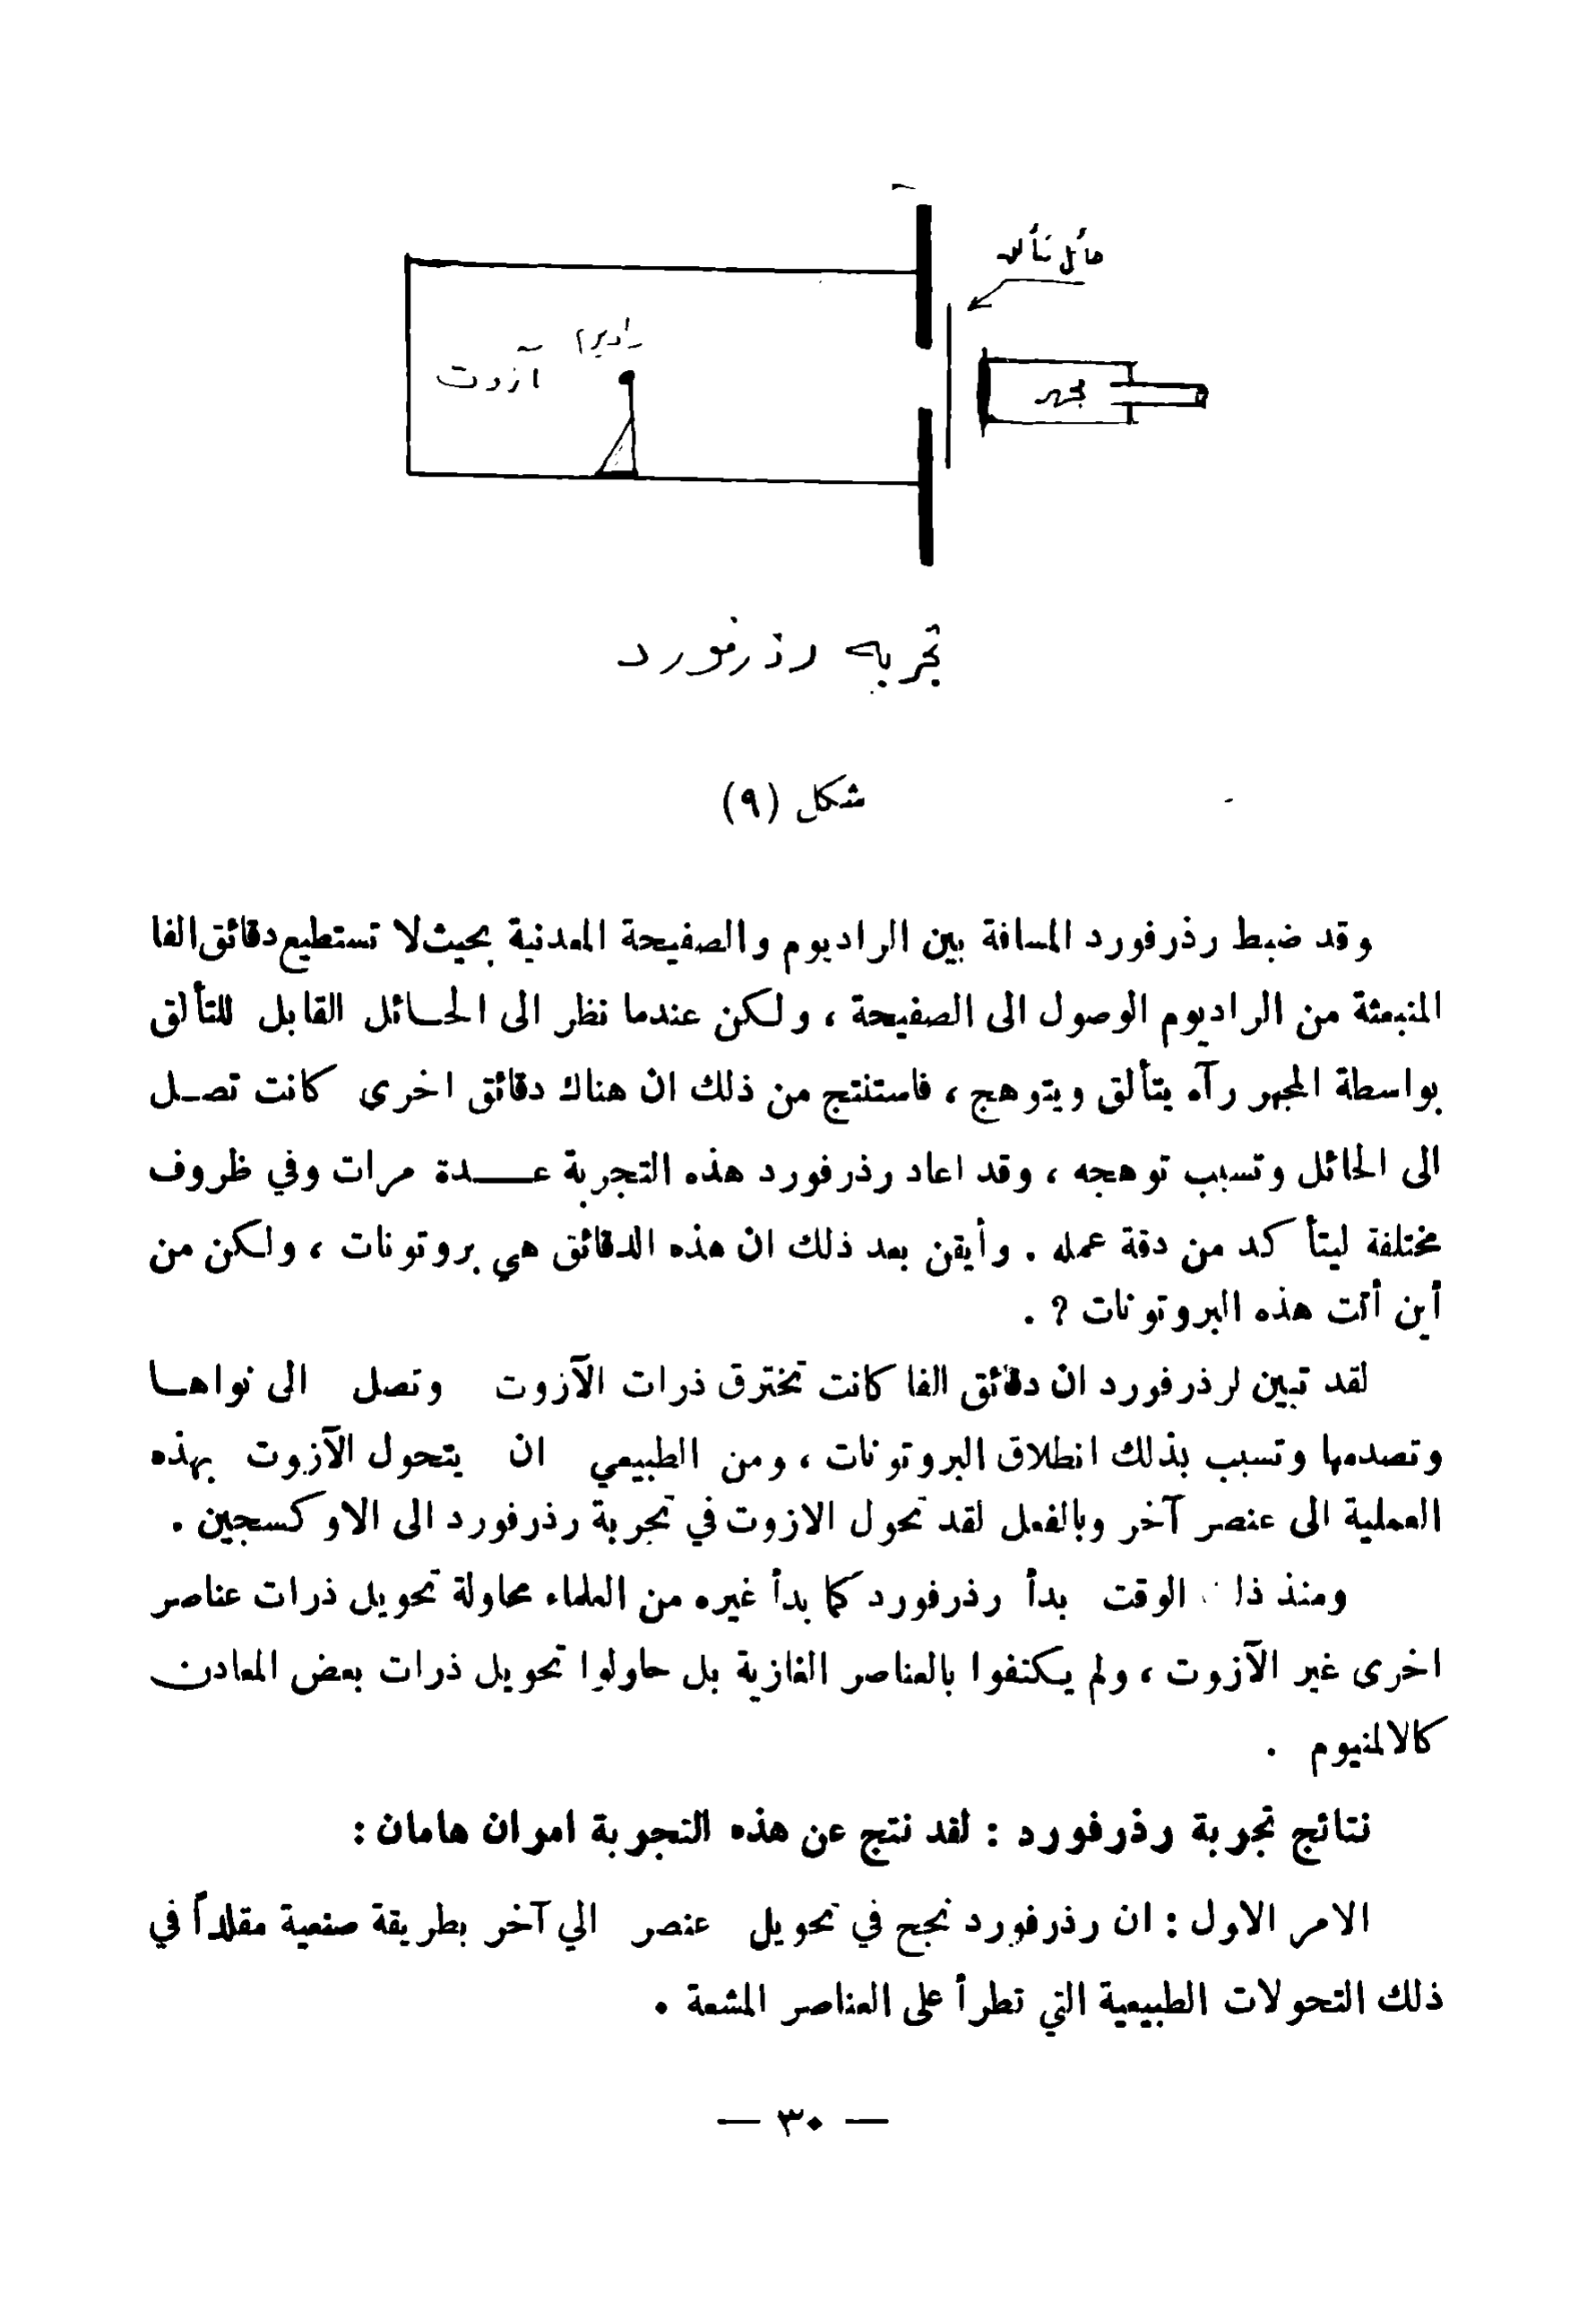 حائل تألق
راديوم
آزوت
مجهر
تجربة رذرفورد
شكل (٩)
وقد ضبط رذرفورد المسافة بين الراديوم والصفيحة المعدنية بحيث لا تستطيع دقائق الفا
المنبعثة من الراديوم الوصول الى الصفيحة ، ولكن عندما نظر الى الحــائل القابل للتألق
بواسطة المجهر رآه يتألق ويتوهج ، فاستنتج من ذلك ان هناك دقائق اخرى كانت تصــل
الى الحائل وتسبب توهجه ، وقد اعاد رذرفورد هذه التجربة عــــدة مرات وفي ظروف
مختلفة ليتأكد من دقة عمله . وأيقن بعد ذلك ان هذه الدقائق هي بروتونات ، ولكن من
أين أتت هذه البروتونات ? .
لقد تبين لرذرفورد ان دقائق الفا كانت تخترق ذرات الآزوت وتصل الى نواهــا
وتصدمها وتسبب بذلك انطلاق البروتونات ، ومن الطبيعي ان يتحول الآزوت بهذه
العملية الى عنصر آخر وبالفعل لقد تحول الازوت في تجربة رذرفورد الى الاوكسجين .
ومنذ ذا الوقت بدأ رذرفورد كما بدأ غيره من العلماء محاولة تحويل ذرات عناصر
اخرى غير الآزوت ، ولم يكتفوا بالعناصر الغازية بل حاولوا تحويل ذرات بعض المعادن
كالالمنيوم .
نتائج تجربة رذرفورد : لقد نتج عن هذه التجربة امران هامان :
الامر الاول : ان رذرفورد نجح في تحويل عنصر الي آخر بطريقة صنعية مقلداً في
ذلك التحولات الطبيعية التي تطرأ على العناصر المشعة .
— ٣٠ —